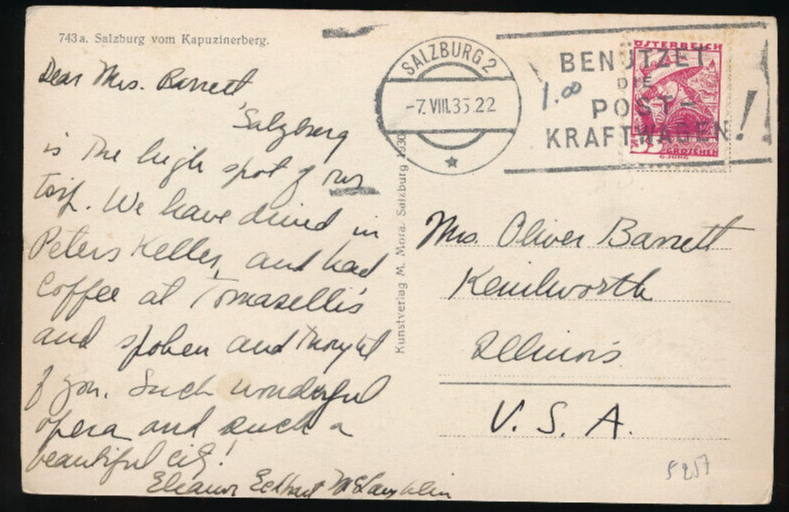 743 a. Salzburg vom Kapuzinerberg.
Dear Mrs. Barrett
Salzburg
is the high spot of our
trip. We have dined in
Peters Keller, and had
Coffee at Tomaselli's
and spoken and thought
of you. Such wonderful
opera and such a
beautiful city!
Eleanor Eckhart McLaughlin
Kunstverlag M. Mora, Salzburg 1930
SALZBURG 2
-7. VIII. 35 22
BENÜTZET
DIE
POST-
KRAFTWAGEN!
ÖSTERREICH
GROSCHEN
1.00
Mrs. Oliver Barrett
Kenilworth
Illinois
U. S. A.
5257